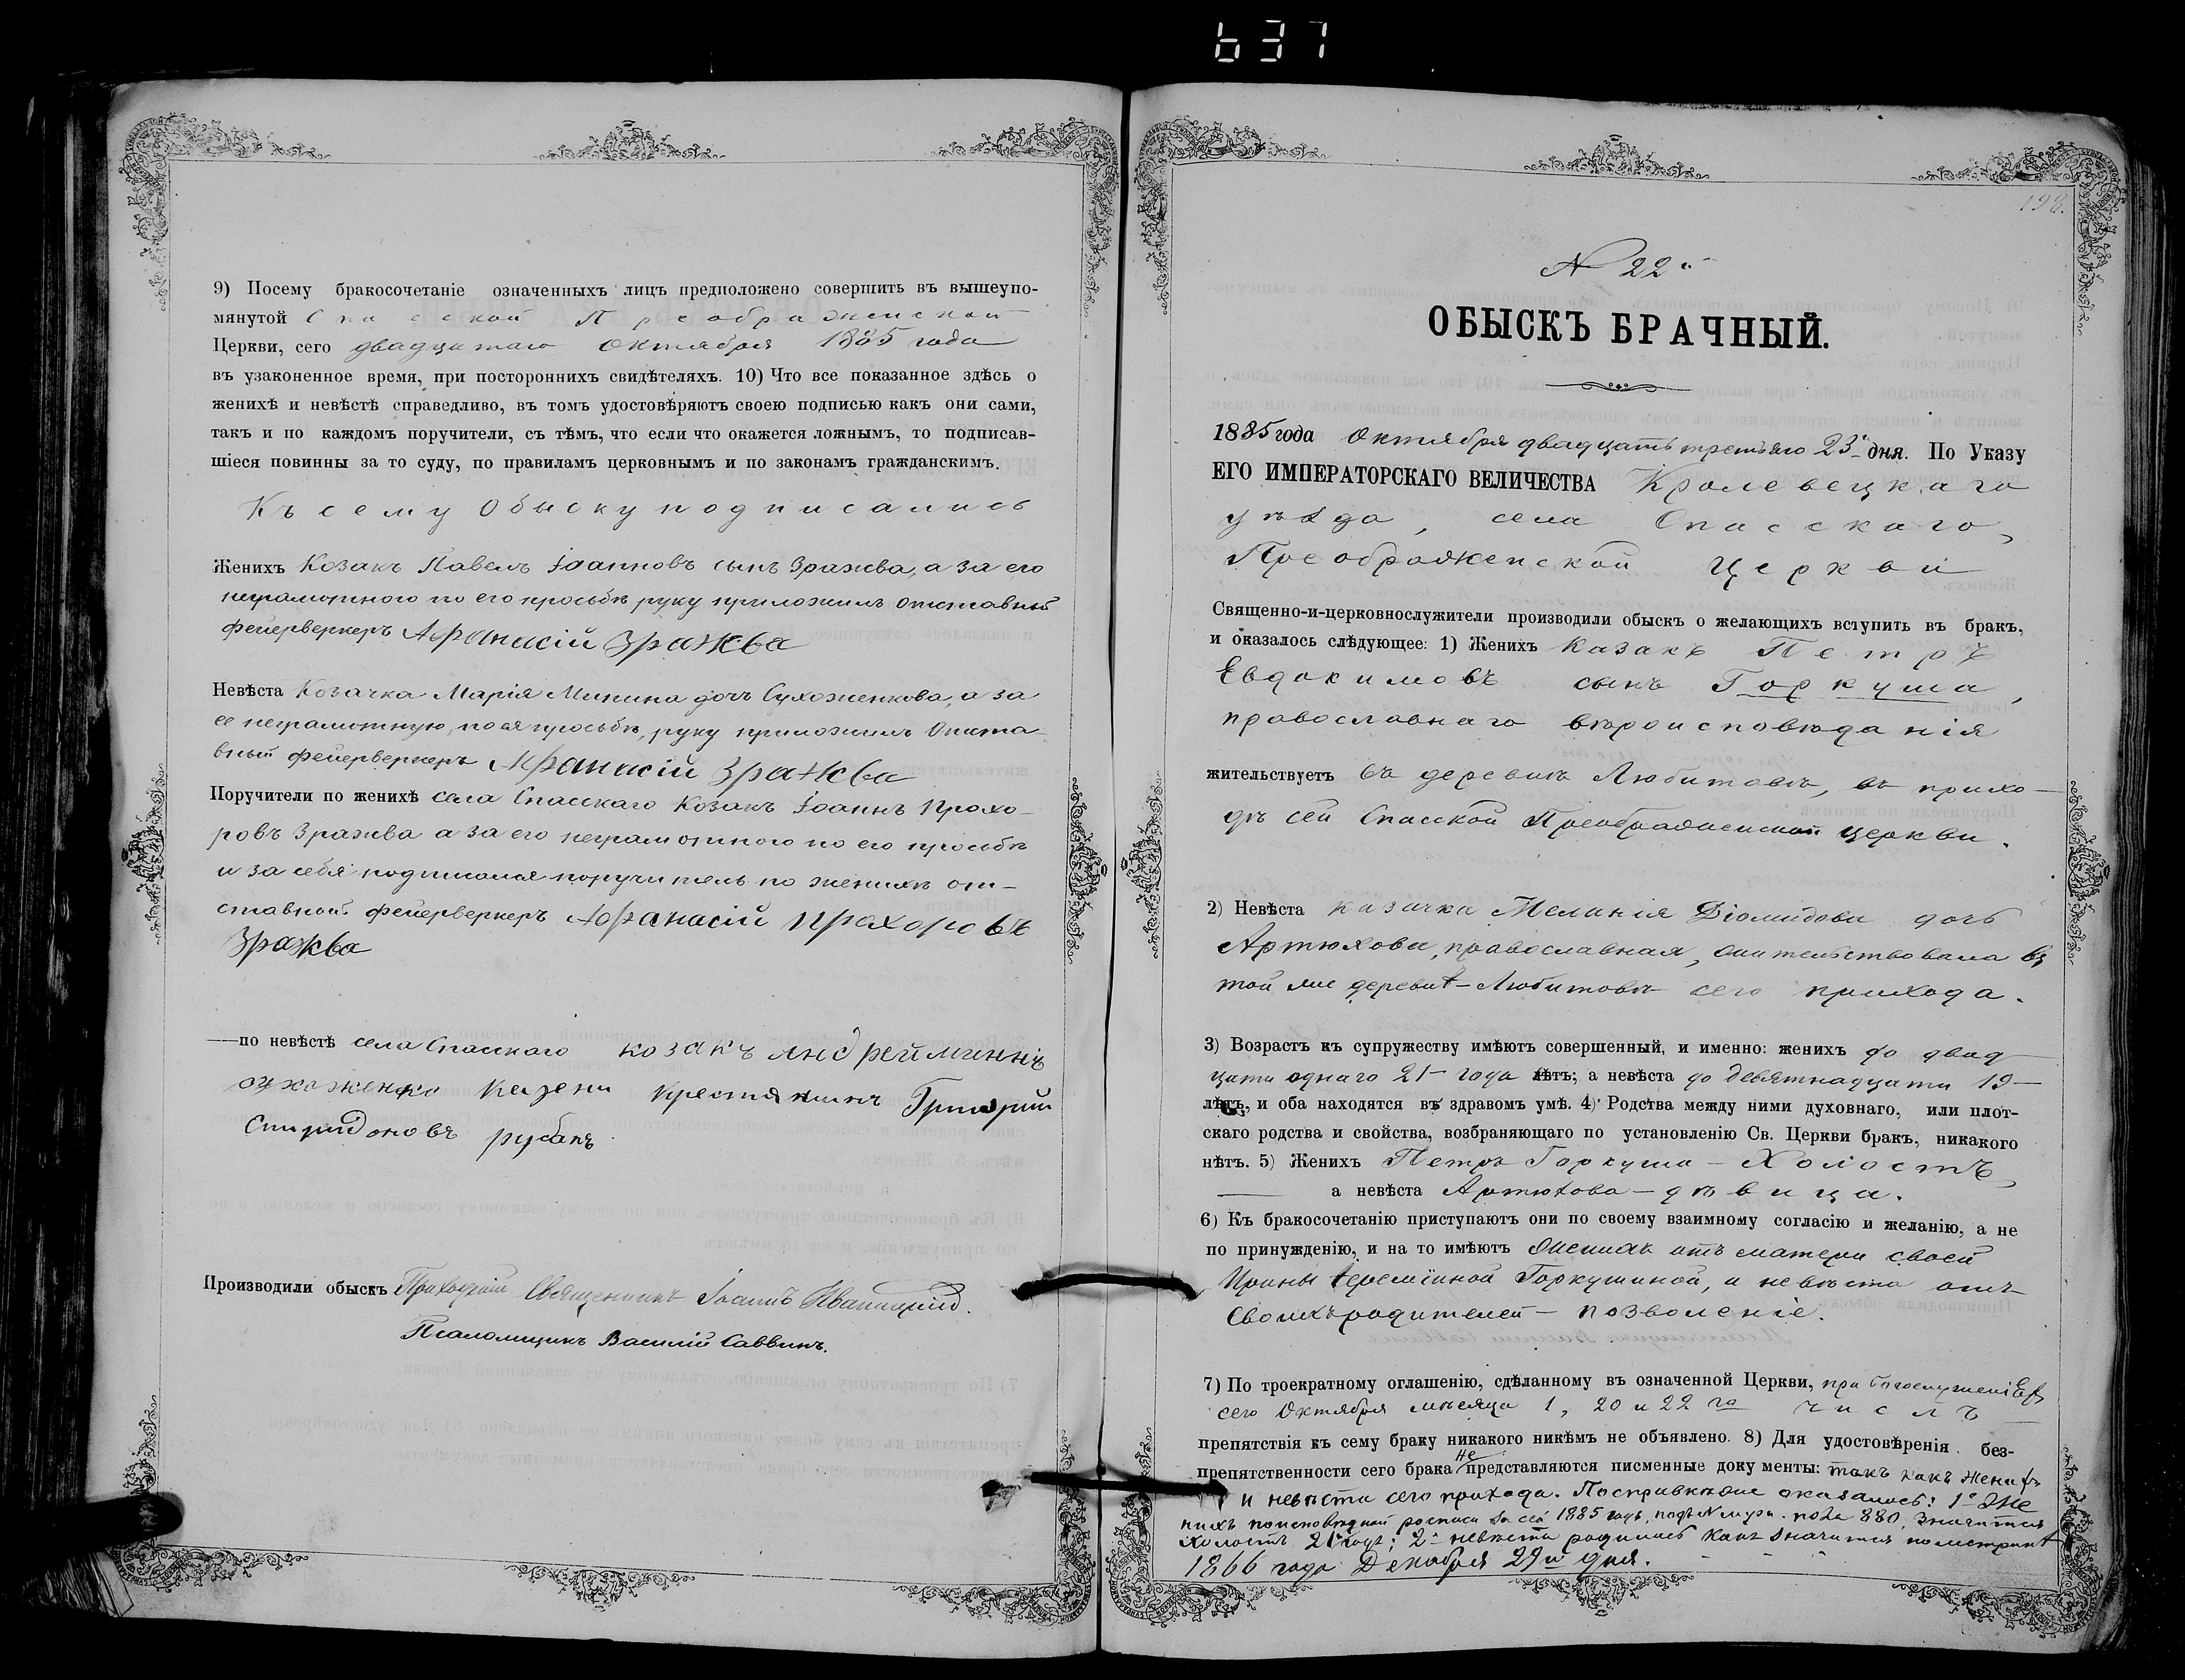 637
9) Посему бракосочетаніе означенныхъ лицъ предположено совершить въ вышеупо-
мянутой Спасской Преображенской
Церкви, сего двадцатаго Октября 1885 года
въ узаконенное время, при постороннихъ свидѣтеляхъ. 10) Что все показанное здѣсь о
женихѣ и невѣстѣ справедливо, въ томъ удостовѣряютъ своею подписью какъ они сами,
такъ и по каждомъ поручители, съ тѣмъ, что если что окажется ложнымъ, то подписав-
шіеся повинны за то суду, по правиламъ церковнымъ и по законамъ гражданскимъ.
Къ сему Обыску подписались
Женихъ Козакъ Павелъ Іоанновъ сынъ Зражва, а за его
неграмотного по его просьбѣ руку приложилъ отставный
фейерверкеръ Афанасій Зражва
Невѣста Козачка Марія Минина дочь Сухоженкова, а за
ее неграмотную, по ея просьбѣ, руку приложилъ Отста-
вный фейерверкеръ Афанасій Зражва
Поручители по женихѣ села Спасскаго Козакъ Іоаннъ Прохо-
ровъ Зражва а за его неграмотного по его просьбѣ
и за себя подписался поручитель по женихѣ от-
ставной фейерверкеръ Афанасій Прохоровъ
Зражва
—по невѣстѣ села Спасскаго козакъ Андрей Мининъ
Сухоженко Казени Крестянинъ Григорий
Спиридоновъ рубанъ
Производили обыскъ Приходскій Священникъ Іоаннъ
Псаломщикъ Василій Саввинъ.
198.
N 22й
ОБЫСКЪ БРАЧНЫЙ.
1885 года Октября двадцать третьяго 23 дня. По Указу
ЕГО ИМПЕРАТОРСКАГО ВЕЛИЧЕСТВА Кролевецкаго
уѣзда, села Спасскаго,
Преображенской Церкви
Священно-и-церковнослужители производили обыскъ о желающихъ вступить въ бракъ,
и оказалось слѣдующее: 1) Женихъ Казакъ Петръ
Евдокимовъ сынъ Горкуша,
православнаго вѣроисповѣданія
жительствуетъ въ деревнѣ Любитовкѣ, въ прихо-
дѣ сей Спасской Преображенской церкви.
2) Невѣста казачка Меланія Діомидова дочь
Артюхова, православная, жительствовала въ
той же деревнѣ-Любитовкѣ сего прихода.
3) Возрастъ къ супружеству имѣютъ совершенный, и именно: женихъ до двад
цати однаго 21- года лѣтъ; а невѣста до девятнадцати 19-
лѣтъ, и оба находятся въ здравомъ умѣ. 4) Родства между ними духовнаго, или плот-
скаго родства и свойства, возбраняющаго по установленію Св. Церкви бракъ, никакого
нѣтъ. 5) Женихъ Петръ Горкуша - Холостъ,
а невѣста Артюхова - дѣвица.
6) Къ бракосочетанію приступаютъ они по своему взаимному согласію и желанію, а не
по принужденію, и на то имѣютъ Женихъ отъ матери своей
Ирины Еремѣиной Горкушиной, а невѣста отъ
своихъ родителей - позволеніе.
7) По троекратному оглашенію, сдѣланному въ означенной Церкви, при богослуженіяхъ
сего Октября мѣсяца 1, 20 и 22 го числъ
препятствія къ сему браку никакого никѣмъ не объявлено. 8) Для удостовѣренія без-
препятственности сего брака не представляются писменные документы: такъ какъ Женихъ
и невѣста сего прихода. По справкѣ же оказалось: 1е Же
нихъ по исповѣдной росписи за сей 1885 годъ, подъ N 880 значится
холостъ 21 годъ; 2е невѣста родилась какъ значится по метрикѣ
1866 года Декабря 29го дня.